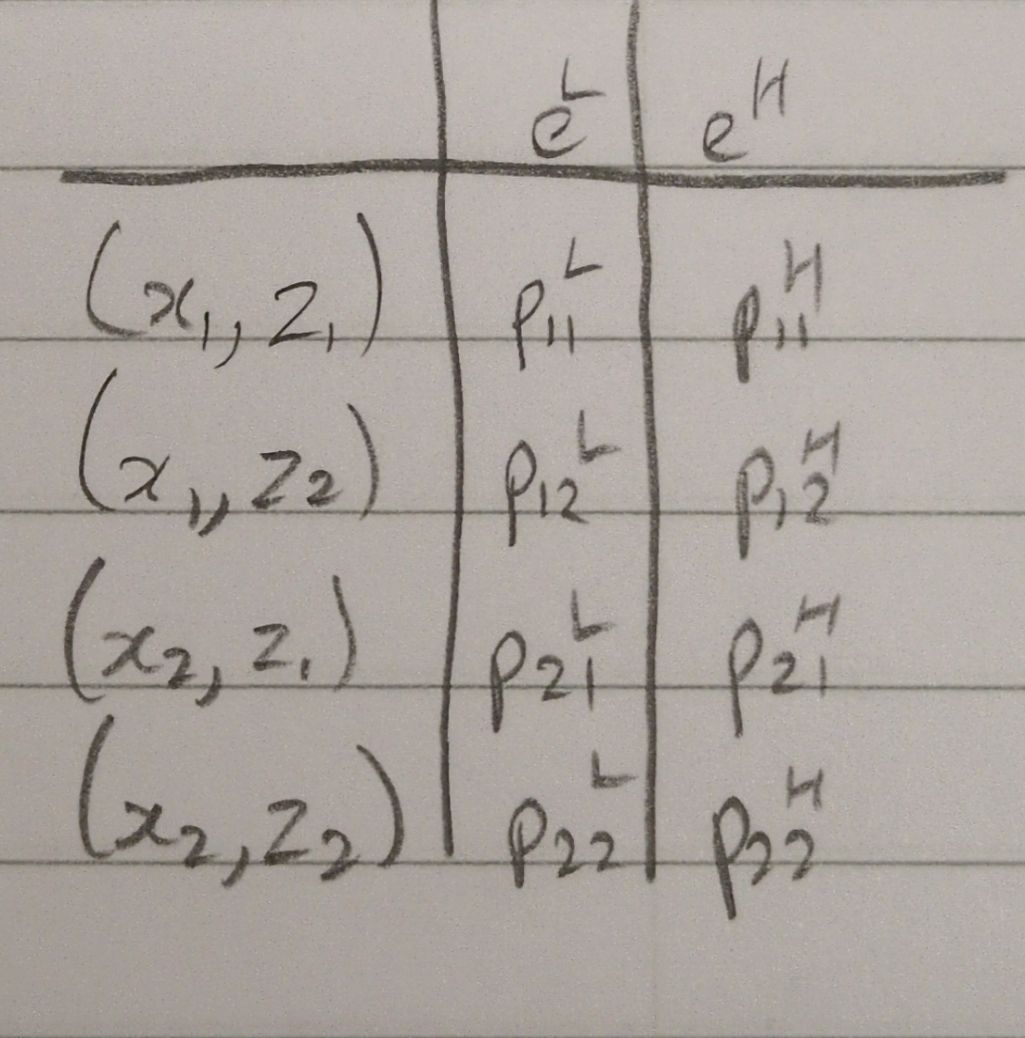 e^L e^H
(x₁, z₁) p₁₁^L p₁₁^H
(x₁, z₂) p₁₂^L p₁₂^H
(x₂, z₁) p₂₁^L p₂₁^H
(x₂, z₂) p₂₂^L p₂₂^H